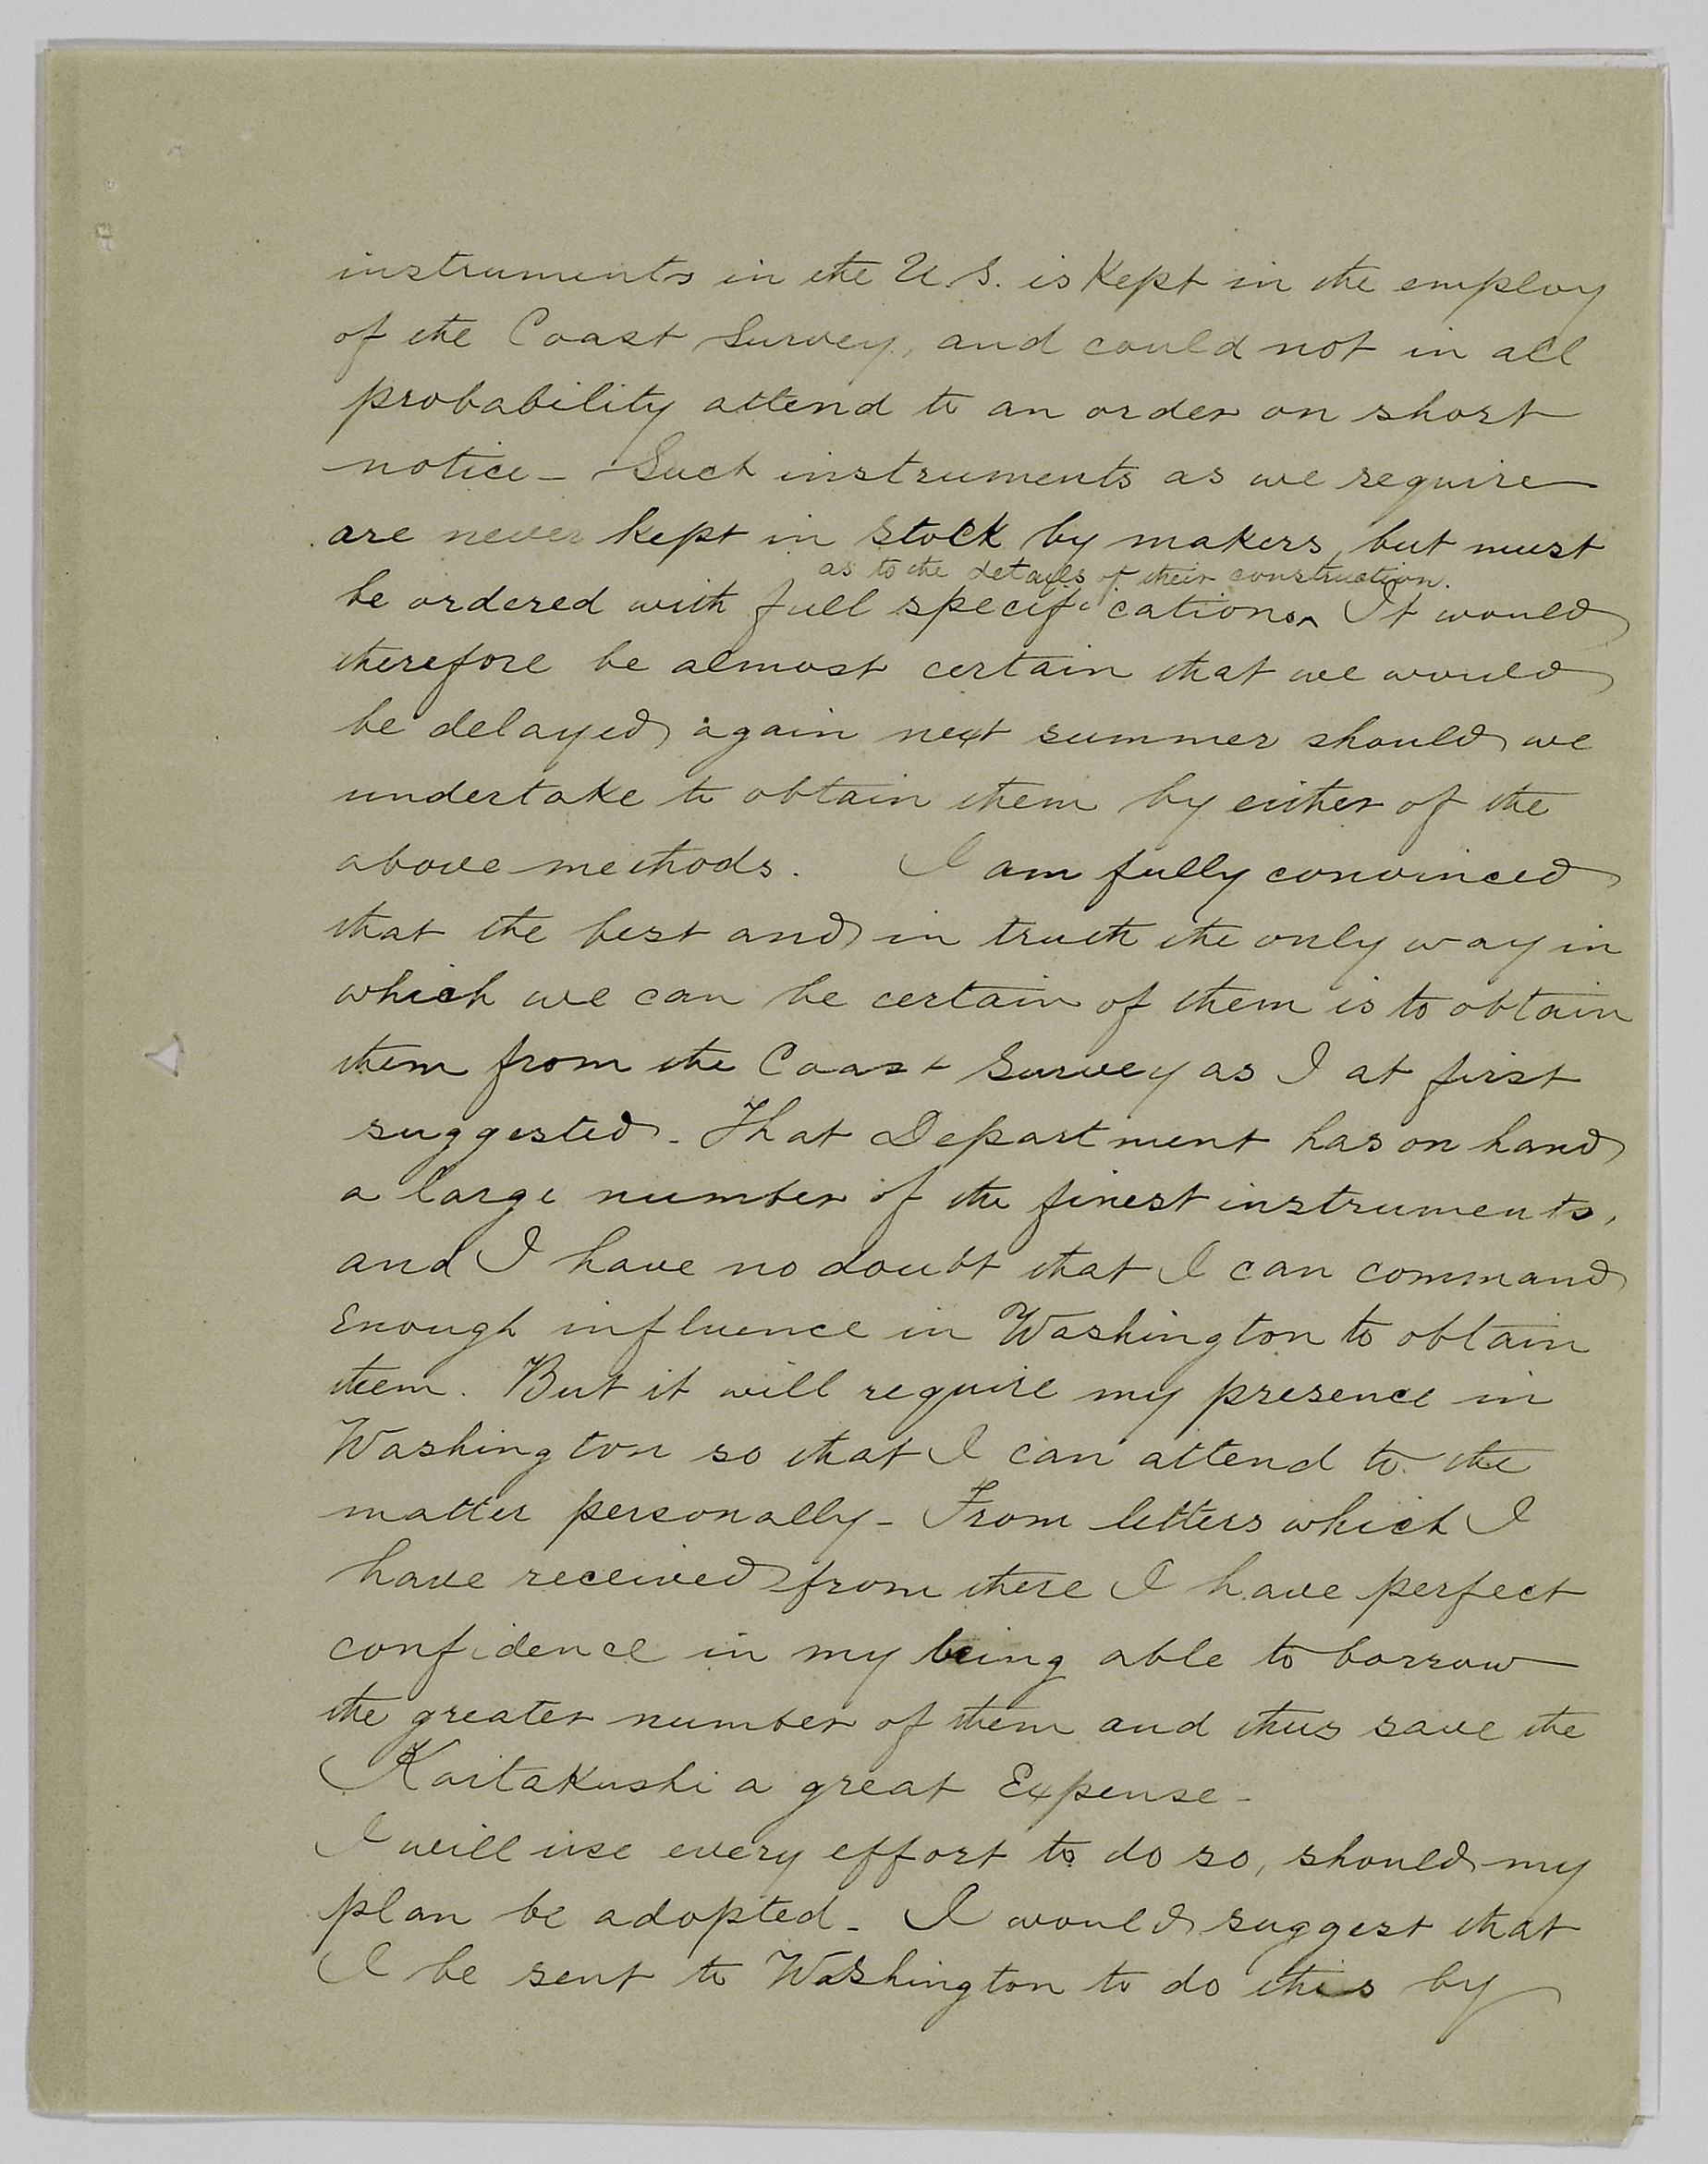 instruments in the U.S. is Kept in the employ
of the Coast Survey, and could not in all
probability attend to an order on short
notice - Such instruments as we require
are never kept in stock by makers, but must
as to the details of their construction.
be ordered with full specifications‸ It would
therefore be almost certain that we would
be delayed again next summer should we
undertake to obtain them by either of the
above methods. I am fully convinced
that the best and in truth the only way in
which we can be certain of them is to obtain
them from the Coast Survey as I at first
suggested - That Department has on hand
a large number of the finest instruments,
and I have no doubt that I can command
Enough influence in Washington to obtain
them. But it will require my presence in
Washington so that I can attend to the
matter personally - From letters which I
have received from there I have perfect
confidence in my being able to borrow
the greater number of them and thus save the
Kaitakushi a great Expense -
I will use every effort to do so, should my
plan be adopted - I would suggest that
I be sent to Washington to do this by